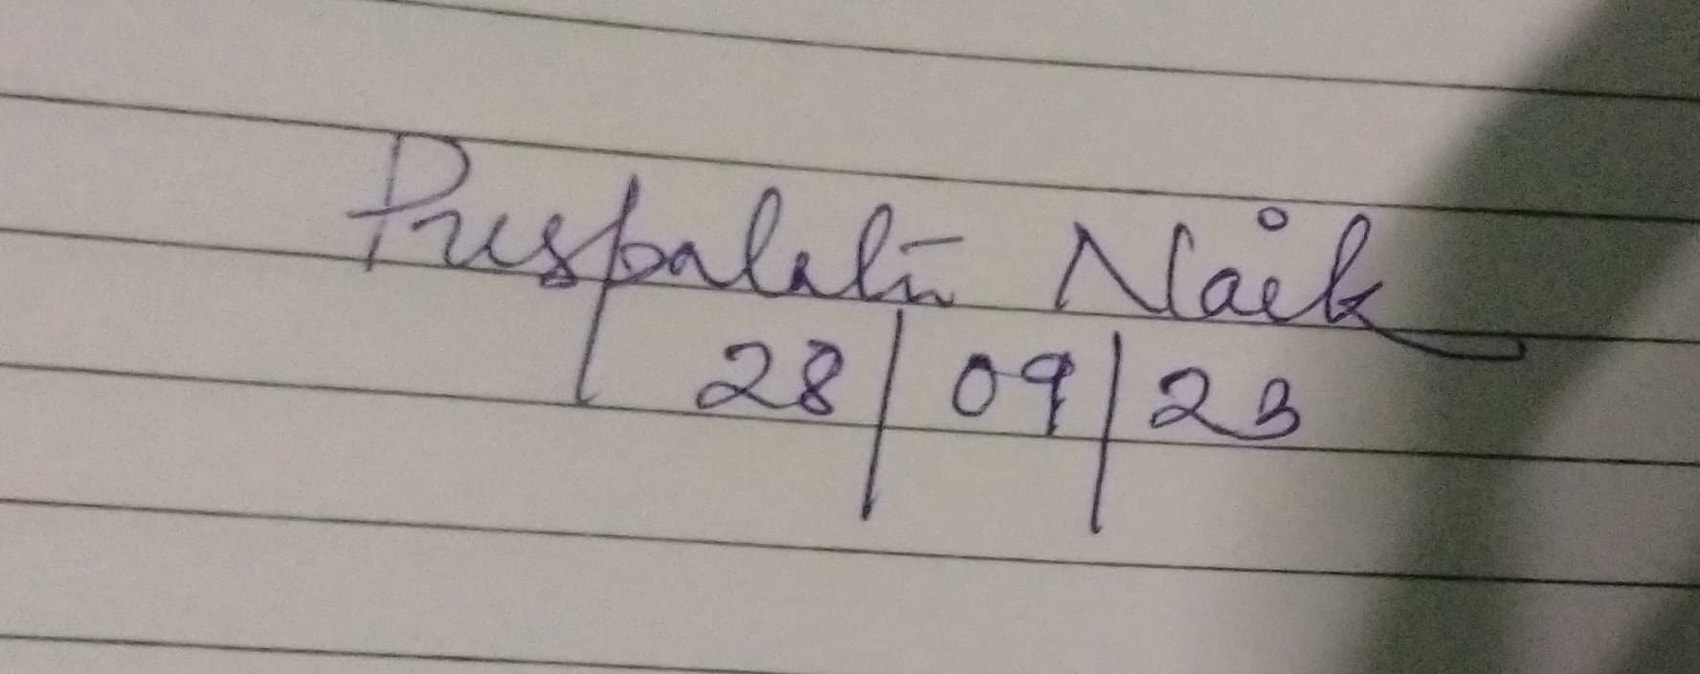 Puspalata Naik
28/09/23